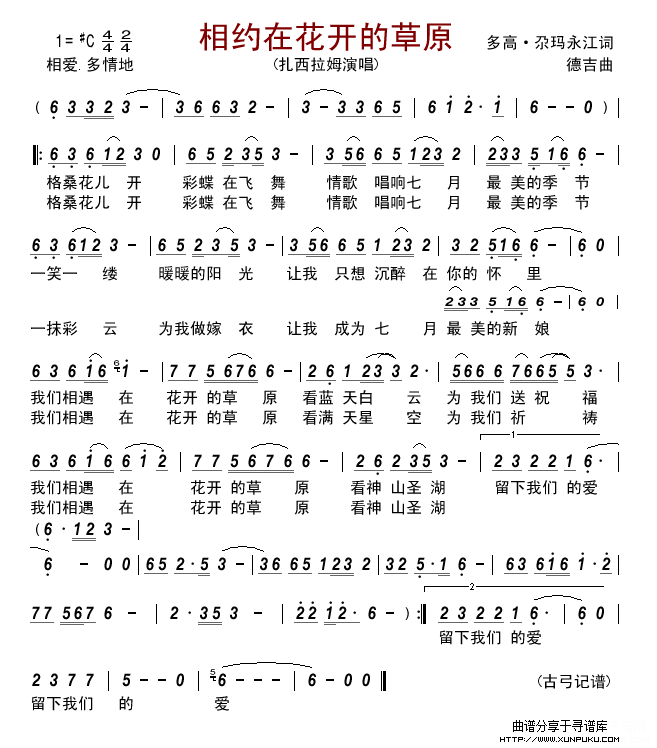 1= #C 4/4 2/4
相约在花开的草原
多高·尕玛永江词
相爱.多情地
(扎西拉姆演唱)
德吉曲
( 6 3 3 2 3 - | 3 6 6 3 2 - | 3 - 3 3 6 5 | 6 1 2 · 1 | 6 - 0 0 ) |
‖: 6 3 6 1 2 3 0 | 6 5 2 3 5 3 - | 3 5 6 6 5 1 2 3 2 | 2 3 3 5 1 6 6 - |
格桑花儿 开 彩蝶 在飞 舞 情歌 唱响七 月 最 美的季 节
格桑花儿 开 彩蝶 在飞 舞 情歌 唱响七 月 最 美的季 节
6 3 6 1 2 3 - | 6 5 2 3 5 3 - | 3 5 6 6 5 1 2 3 2 | 3 2 5 1 6 6 - | 6 0 |
一笑一 缕 暖暖的阳 光 让我 只想 沉醉 在 你的 怀 里
2 3 3 5 1 6 6 - | 6 0 |
一抹彩 云 为我做嫁 衣 让我 成为 七 月 最 美的新 娘
6 3 6 1 6 6 1 - | 7 7 5 6 7 6 6 - | 2 6 1 2 3 3 2 · | 5 6 6 6 7 6 6 5 5 3 · |
我们相遇 在 花开 的草 原 看蓝 天白 云 为 我们 送 祝 福
我们相遇 在 花开 的草 原 看满 天星 空 为 我们 祈 祷
6 3 6 1 6 6 1 2 | 7 7 5 6 7 6 6 - | 2 6 2 3 5 3 - | 1 2 3 2 2 1 6 · |
我们相遇 在 花开 的草 原 看神 山圣 湖 留下我们 的爱
我们相遇 在 花开 的草 原 看神 山圣 湖
( 6 · 1 2 3 - |
6 - 0 0 | 6 5 2 · 5 3 - | 3 6 6 5 1 2 3 2 | 3 2 5 · 1 6 - | 6 3 6 1 6 1 · 2 |
7 7 5 6 7 6 - | 2 · 3 5 3 - | 2 2 1 2 · 6 - ) :‖ 2 2 3 2 2 1 6 · | 6 0 |
留下我们 的爱
2 3 7 7 | 5 - - 0 | 5 6 - - - | 6 - 0 0 ‖
(古弓记谱)
留下我们 的 爱
曲谱分享于寻谱库
HTTP://WWW.XUNPUKU.COM